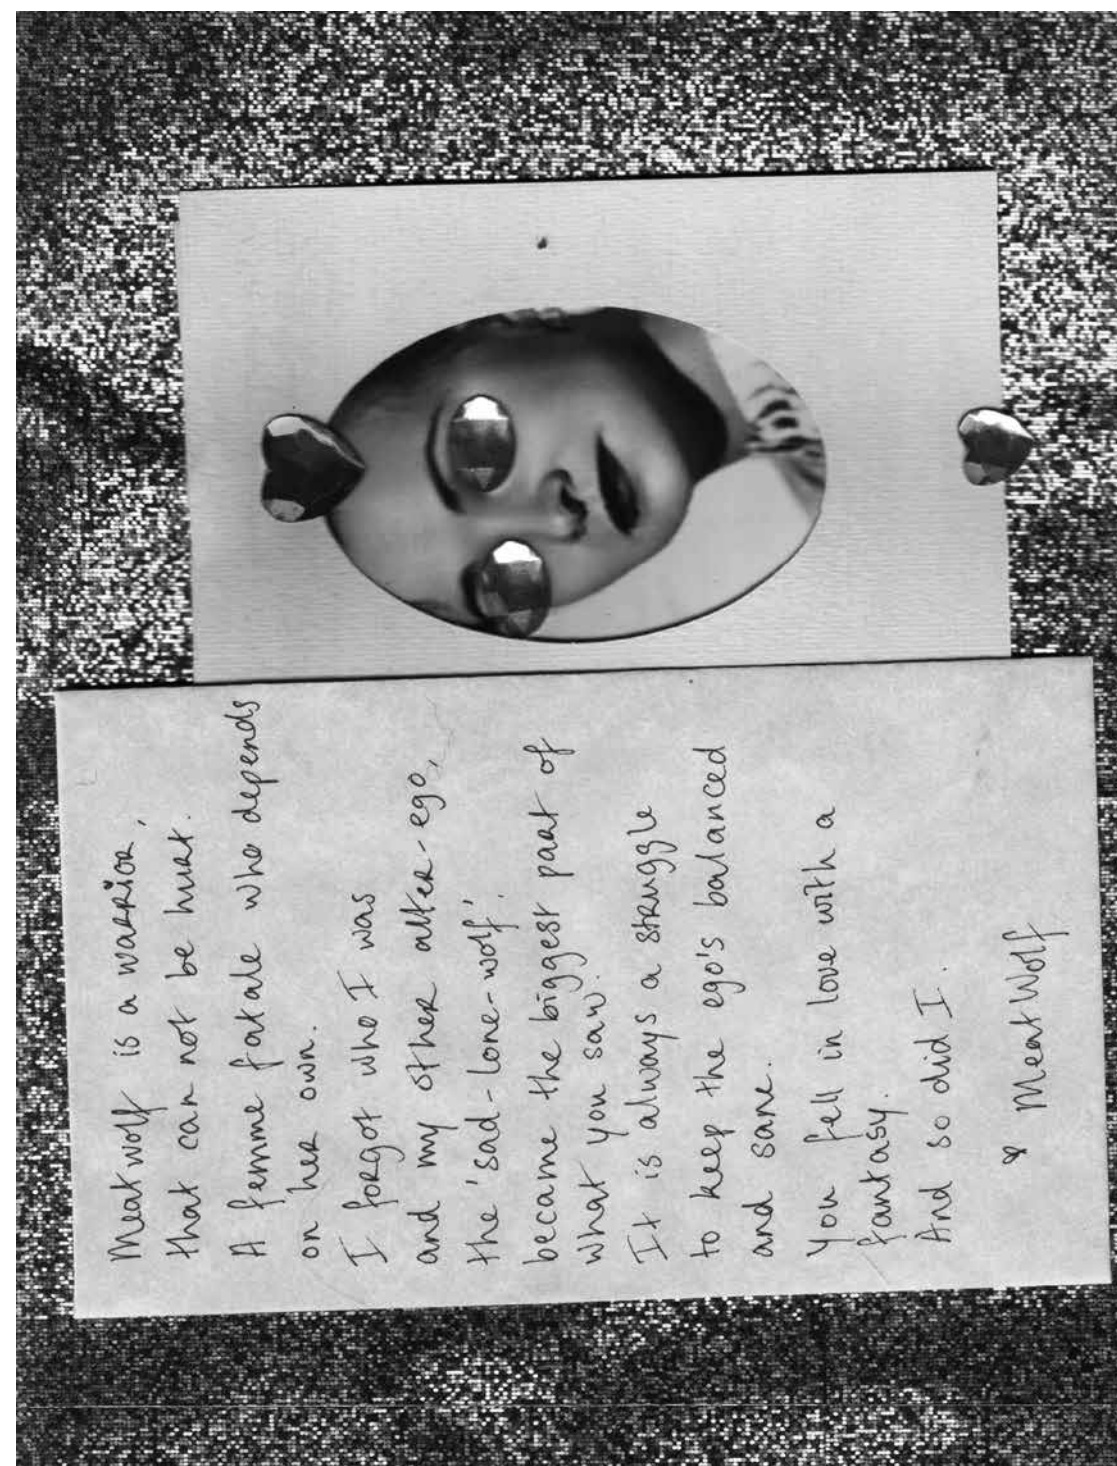 Meatwolf is a warrior,
that can not be hurt.
A femme fatale who depends
on her own.
I forgot who I was
and my other alter-ego,
the 'sad-lone-wolf',
became the biggest part of
what you saw.
It is always a struggle
to keep the ego's balanced
and sane.
You fell in love with a
fantasy.
And so did I.
MeatWolf